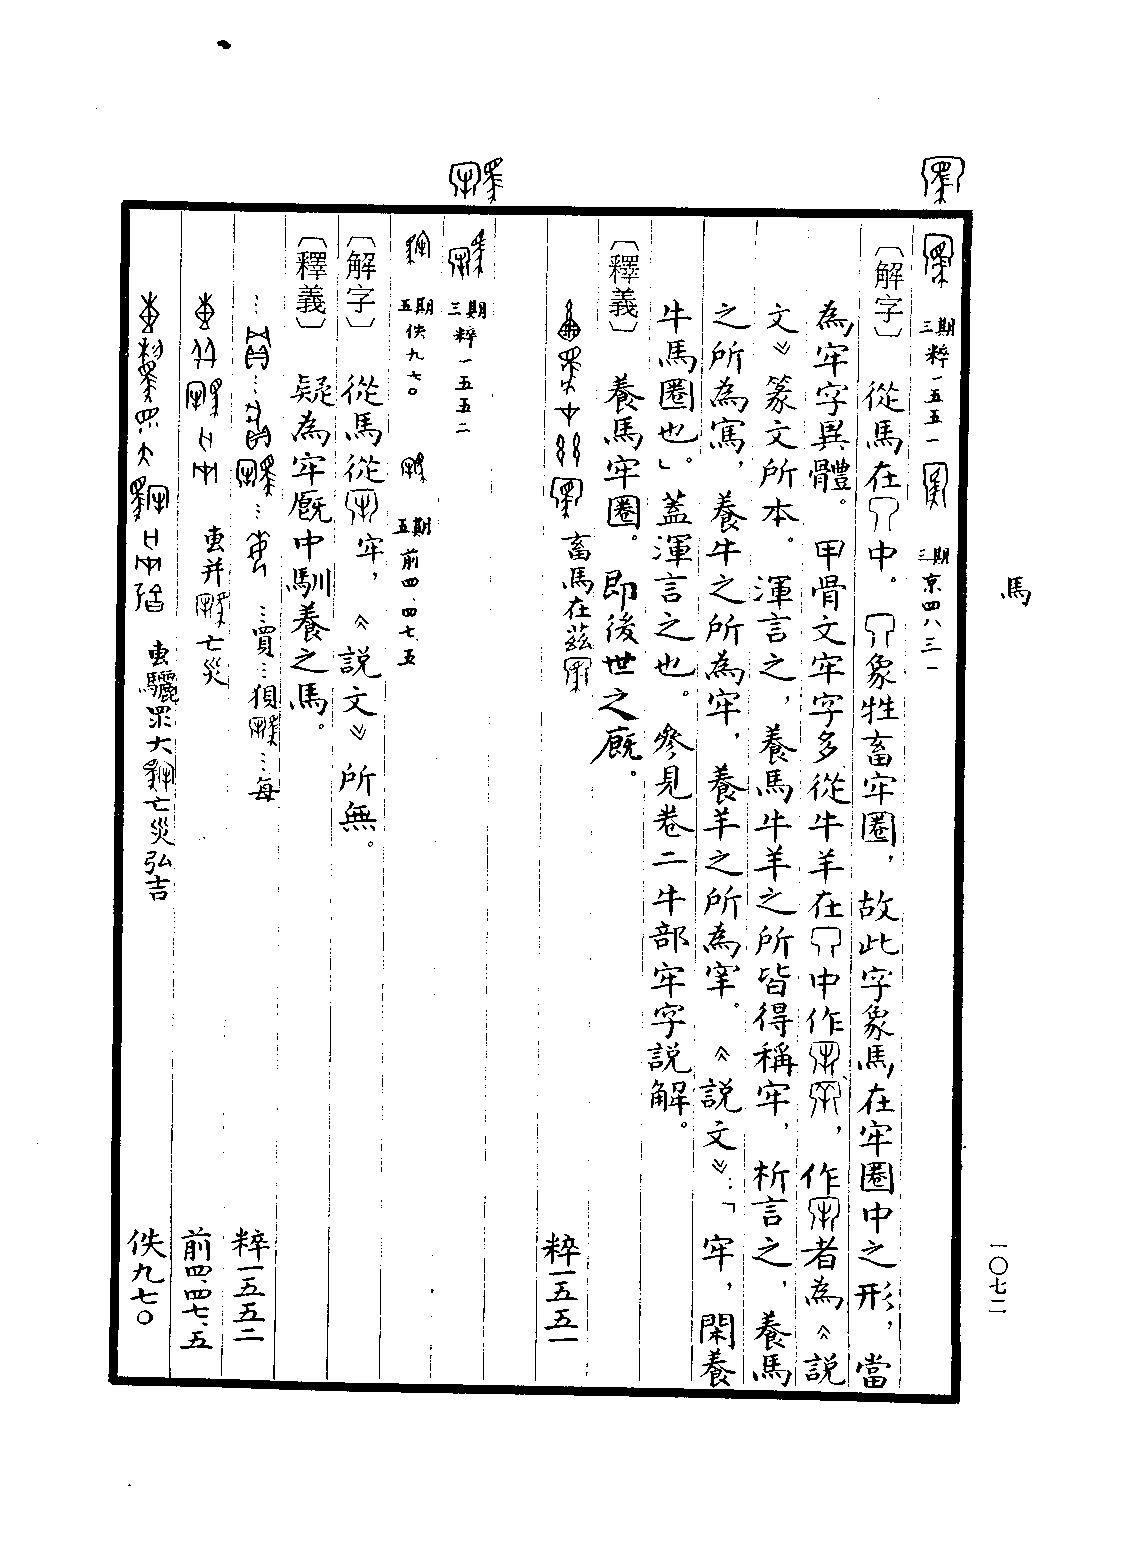 馬
一〇七二
三期 粹一五五一 三期 京四八三一
〔解字〕 從馬在中。象牲畜牢圈，故此字象馬在牢圈中之形，當
為牢字異體。甲骨文牢字多從牛羊在中作，作者為《說
文》篆文所本。渾言之，養馬牛羊之所皆得稱牢，析言之，養馬
之所為寫，養牛之所為牢，養羊之所為宰。《說文》：「牢，閑養
牛馬圈也」。蓋渾言之也。參見卷二牛部牢字說解。
〔釋義〕 養馬牢圈。即後世之廄。
畜馬在茲 粹一五五一
三期 粹一五五二
五期 佚九七〇 五期 前四、四七、五
〔解字〕 從馬從牢，《說文》所無。
〔釋義〕 疑為牢廄中馴養之馬。
…買…狽…每 粹一五五二
叀并亡災 前四、四七、五
叀驪眔大亡災弘吉 佚九七〇